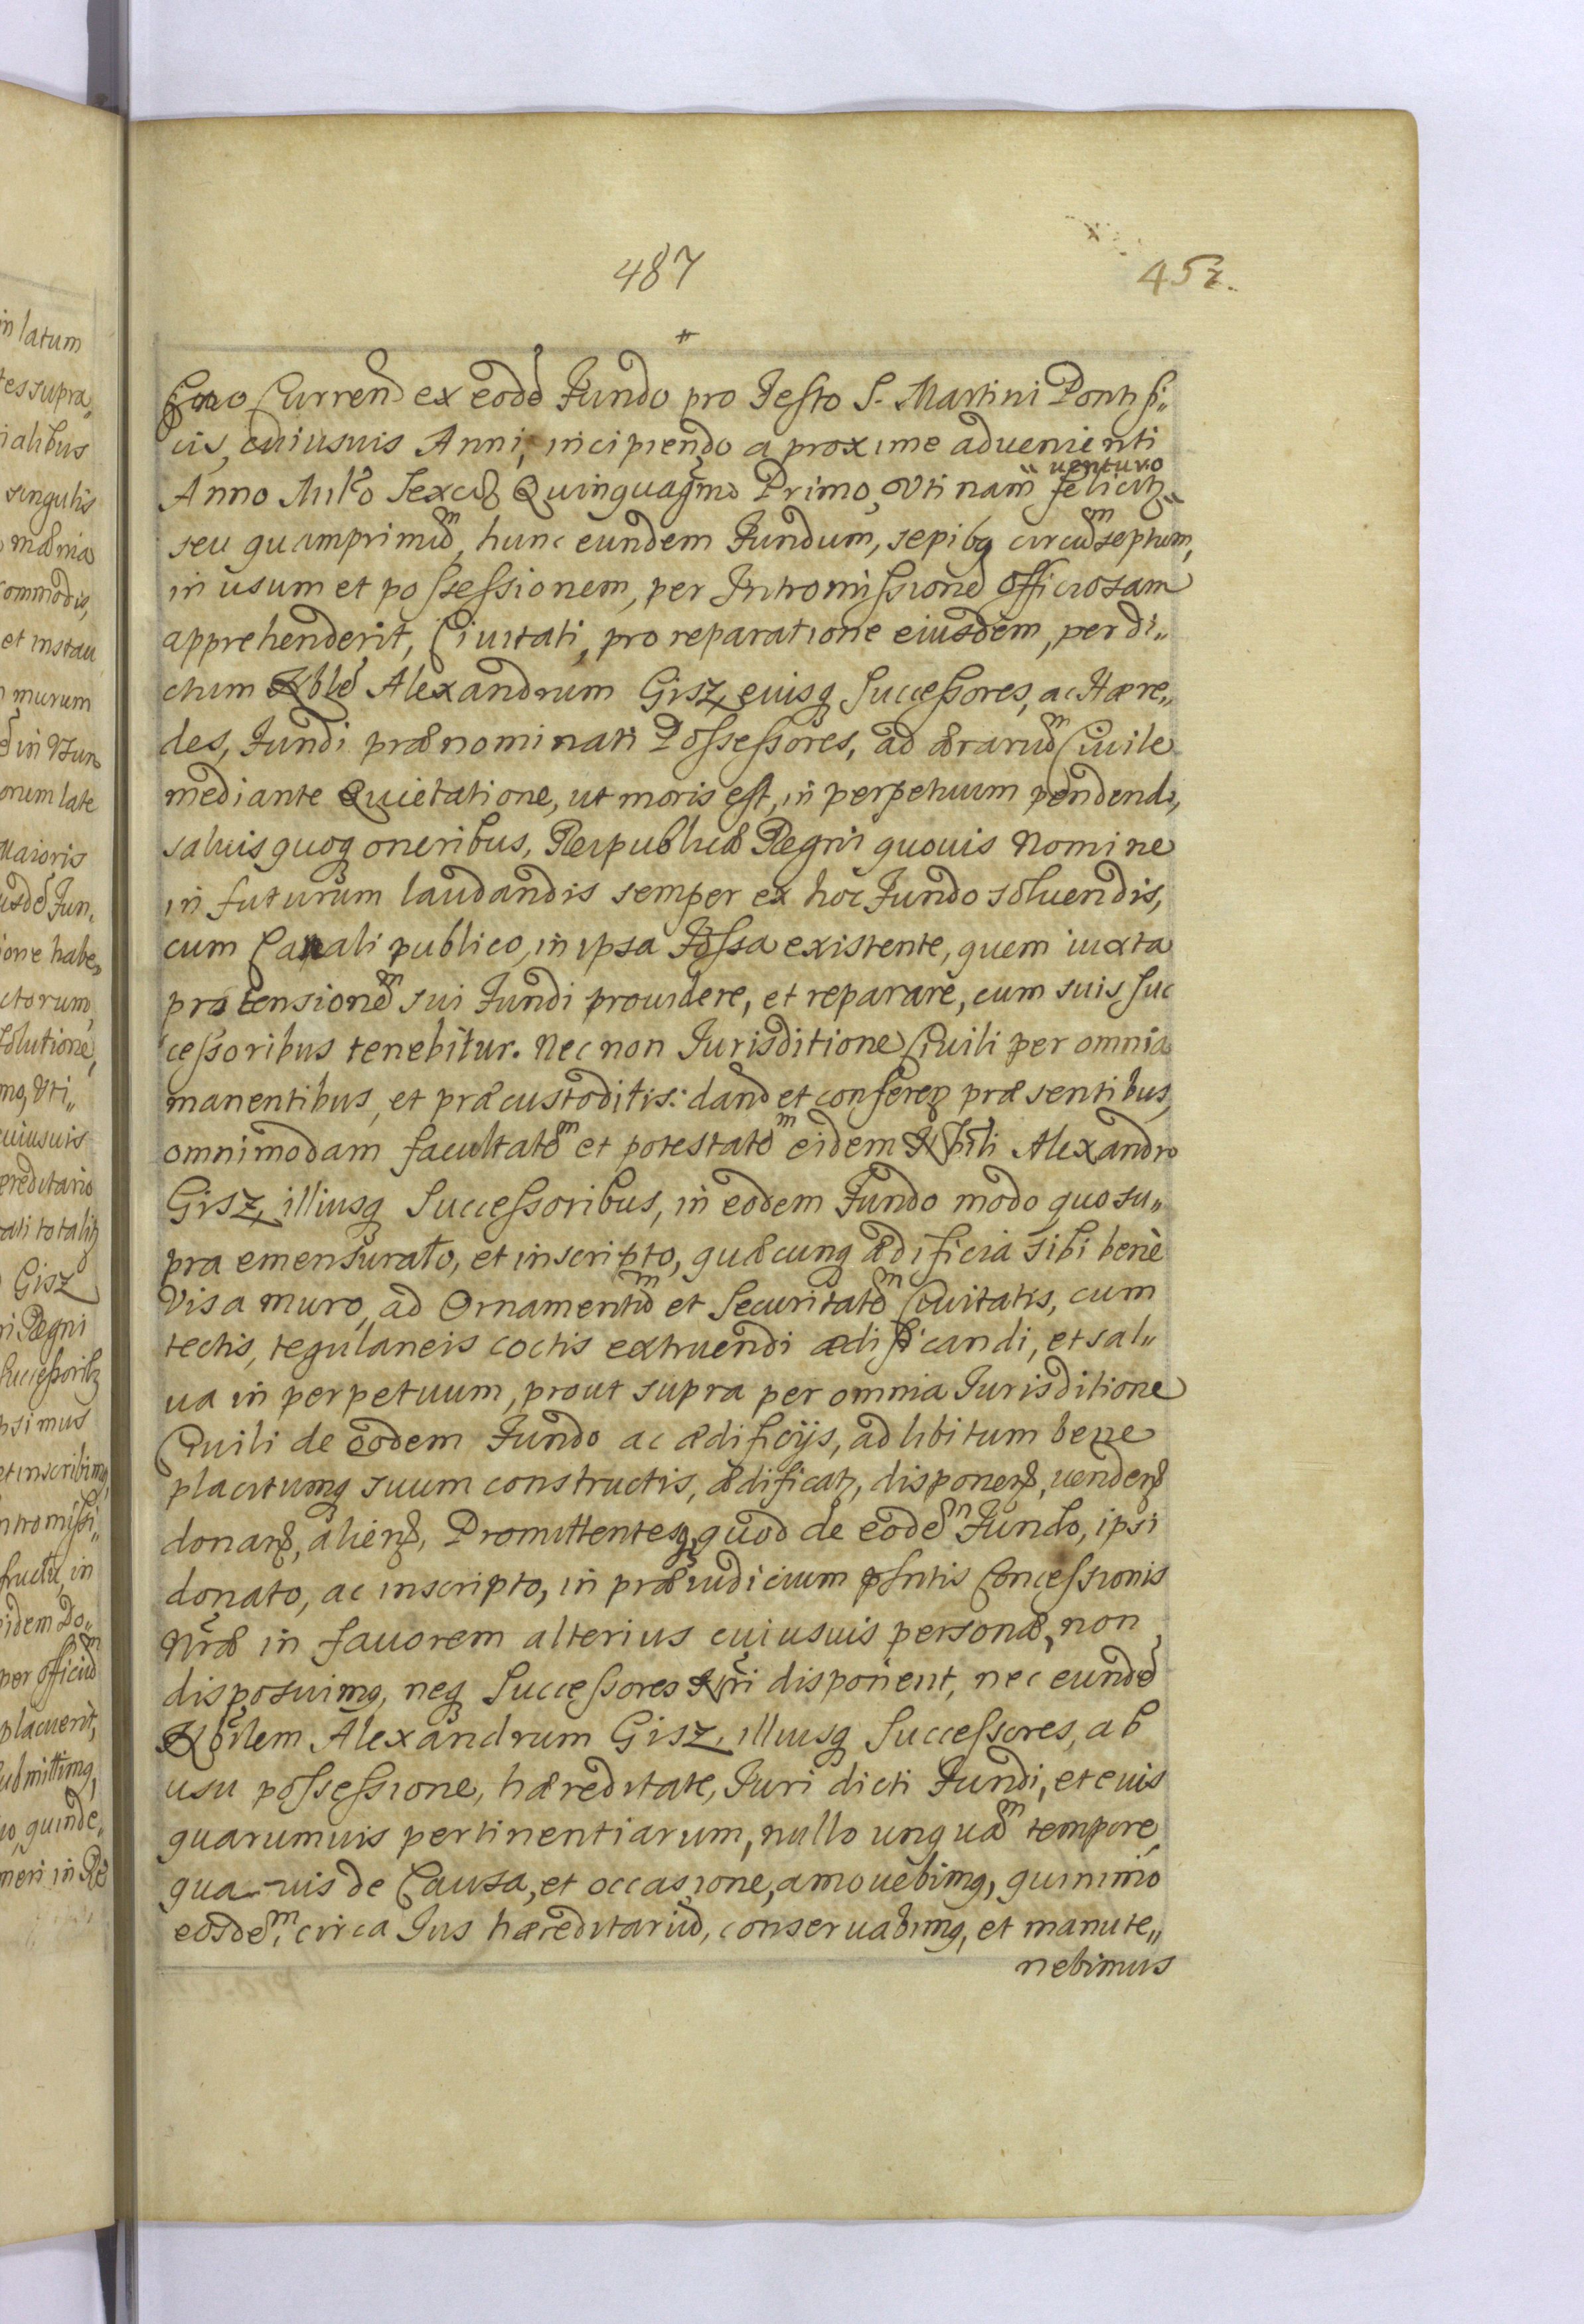 487
452.
Currend ex eodē Fundo pro Festo S. Martini Pontifi„
cis, cuiusuis Anni, incipiendo a proxime aduenienti
uenturo
Anno Millō Sexcēn Quinquagm̄o Primo, Vti nam„ felicitʒ„
seu quamprimūm, hunc eundem Fundum, sepibq circūmseptum,
in usum et possessionem, per Intromissionē Officiosam
apprehenderit, Ciuitati, pro reparatione eiusdem, per di„
ctum Nblē Alexandrum Gisz, euisq Successores, ac Hære„
des, Fundi prænominati Possessores, ad ærariūm Ciuile
mediante Quietatione, ut moris est, in perpetuum pendendo,
saluis quoq oneribus, Reipublicæ Regni quouis Nomine
in futurum laudandis semper ex hoc Fundo soluendis,
cum Canali publico, in ipsa Fossa existente, quem iuxta
prætensionēm sui Fundi prouidere, et reparare, cum suis Suc
cessoribus tenebitur. Nec non Iurisditione Ciuili per omnia
manentibus, et præcustoditis: dand et conferen præsentibus,
omnimodam facultatēm et potestatēm eidem Nbīli Alexandro
Gisz, illiusq Successoribus, in eodem Fundo modo quo su„
pra emensurato, et inscripto, quæcunq ædificia sibi benè
Visa muro, ad Ornamentūm et Securitatēm Ciuitatis, cum
tectis, tegulaneis coctis extruendi ædificandi, et sal„
ua in perpetuum, prout supra per omnia Iurisditione
Ciuili de eodem Fundo ac ædificijs, ad libitum bene
placitumq suum constructis, ædificatʒ, disponend, uendend
donand, aliend, Promittentesq, quod de eodēm Fundo, ipsi
donato, ac inscripto, in præiudicium pntis Concessionis
Nr̄æ in fauorem alterius cuiusuis personæ, non
disposuimq, neq Successores Nr̄i disponent, nec eundē
Nbīlem Alexandrum Gisz, illiusq Successores, ab
usu possessione, hæreditate, Iuri dicti Fundi, et euis
quarumuis pertinentiarum, nullo unquām tempore,
qua-uis de Causa, et occasione, amouebimq, quinimo
eosdēm, circa Ius hæreditariū, conseruabimq, et manute„
nebimus
in latum
tes supra„
ialibus
singulis
mænia
commodis,
et instau
murum
orum late
Maioris
usdē Fun,
ione habe„
ctorum,
solutione,
mq, Vti„
cuiusuis
ereditario
ali totalitʒ
Gisz
ri Regni
Successoribʒ
et inscribimq,
ntromissi„
fructu, in
eidem Do„
per officiūm
placuerit,
submittimq,
io, quinde„
meri in Re